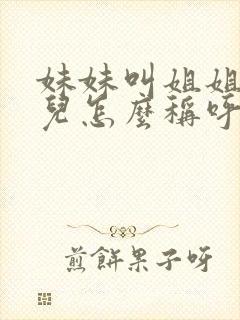 妹妹叫姐姐
兒怎麼稱呼
煎餅果子呀